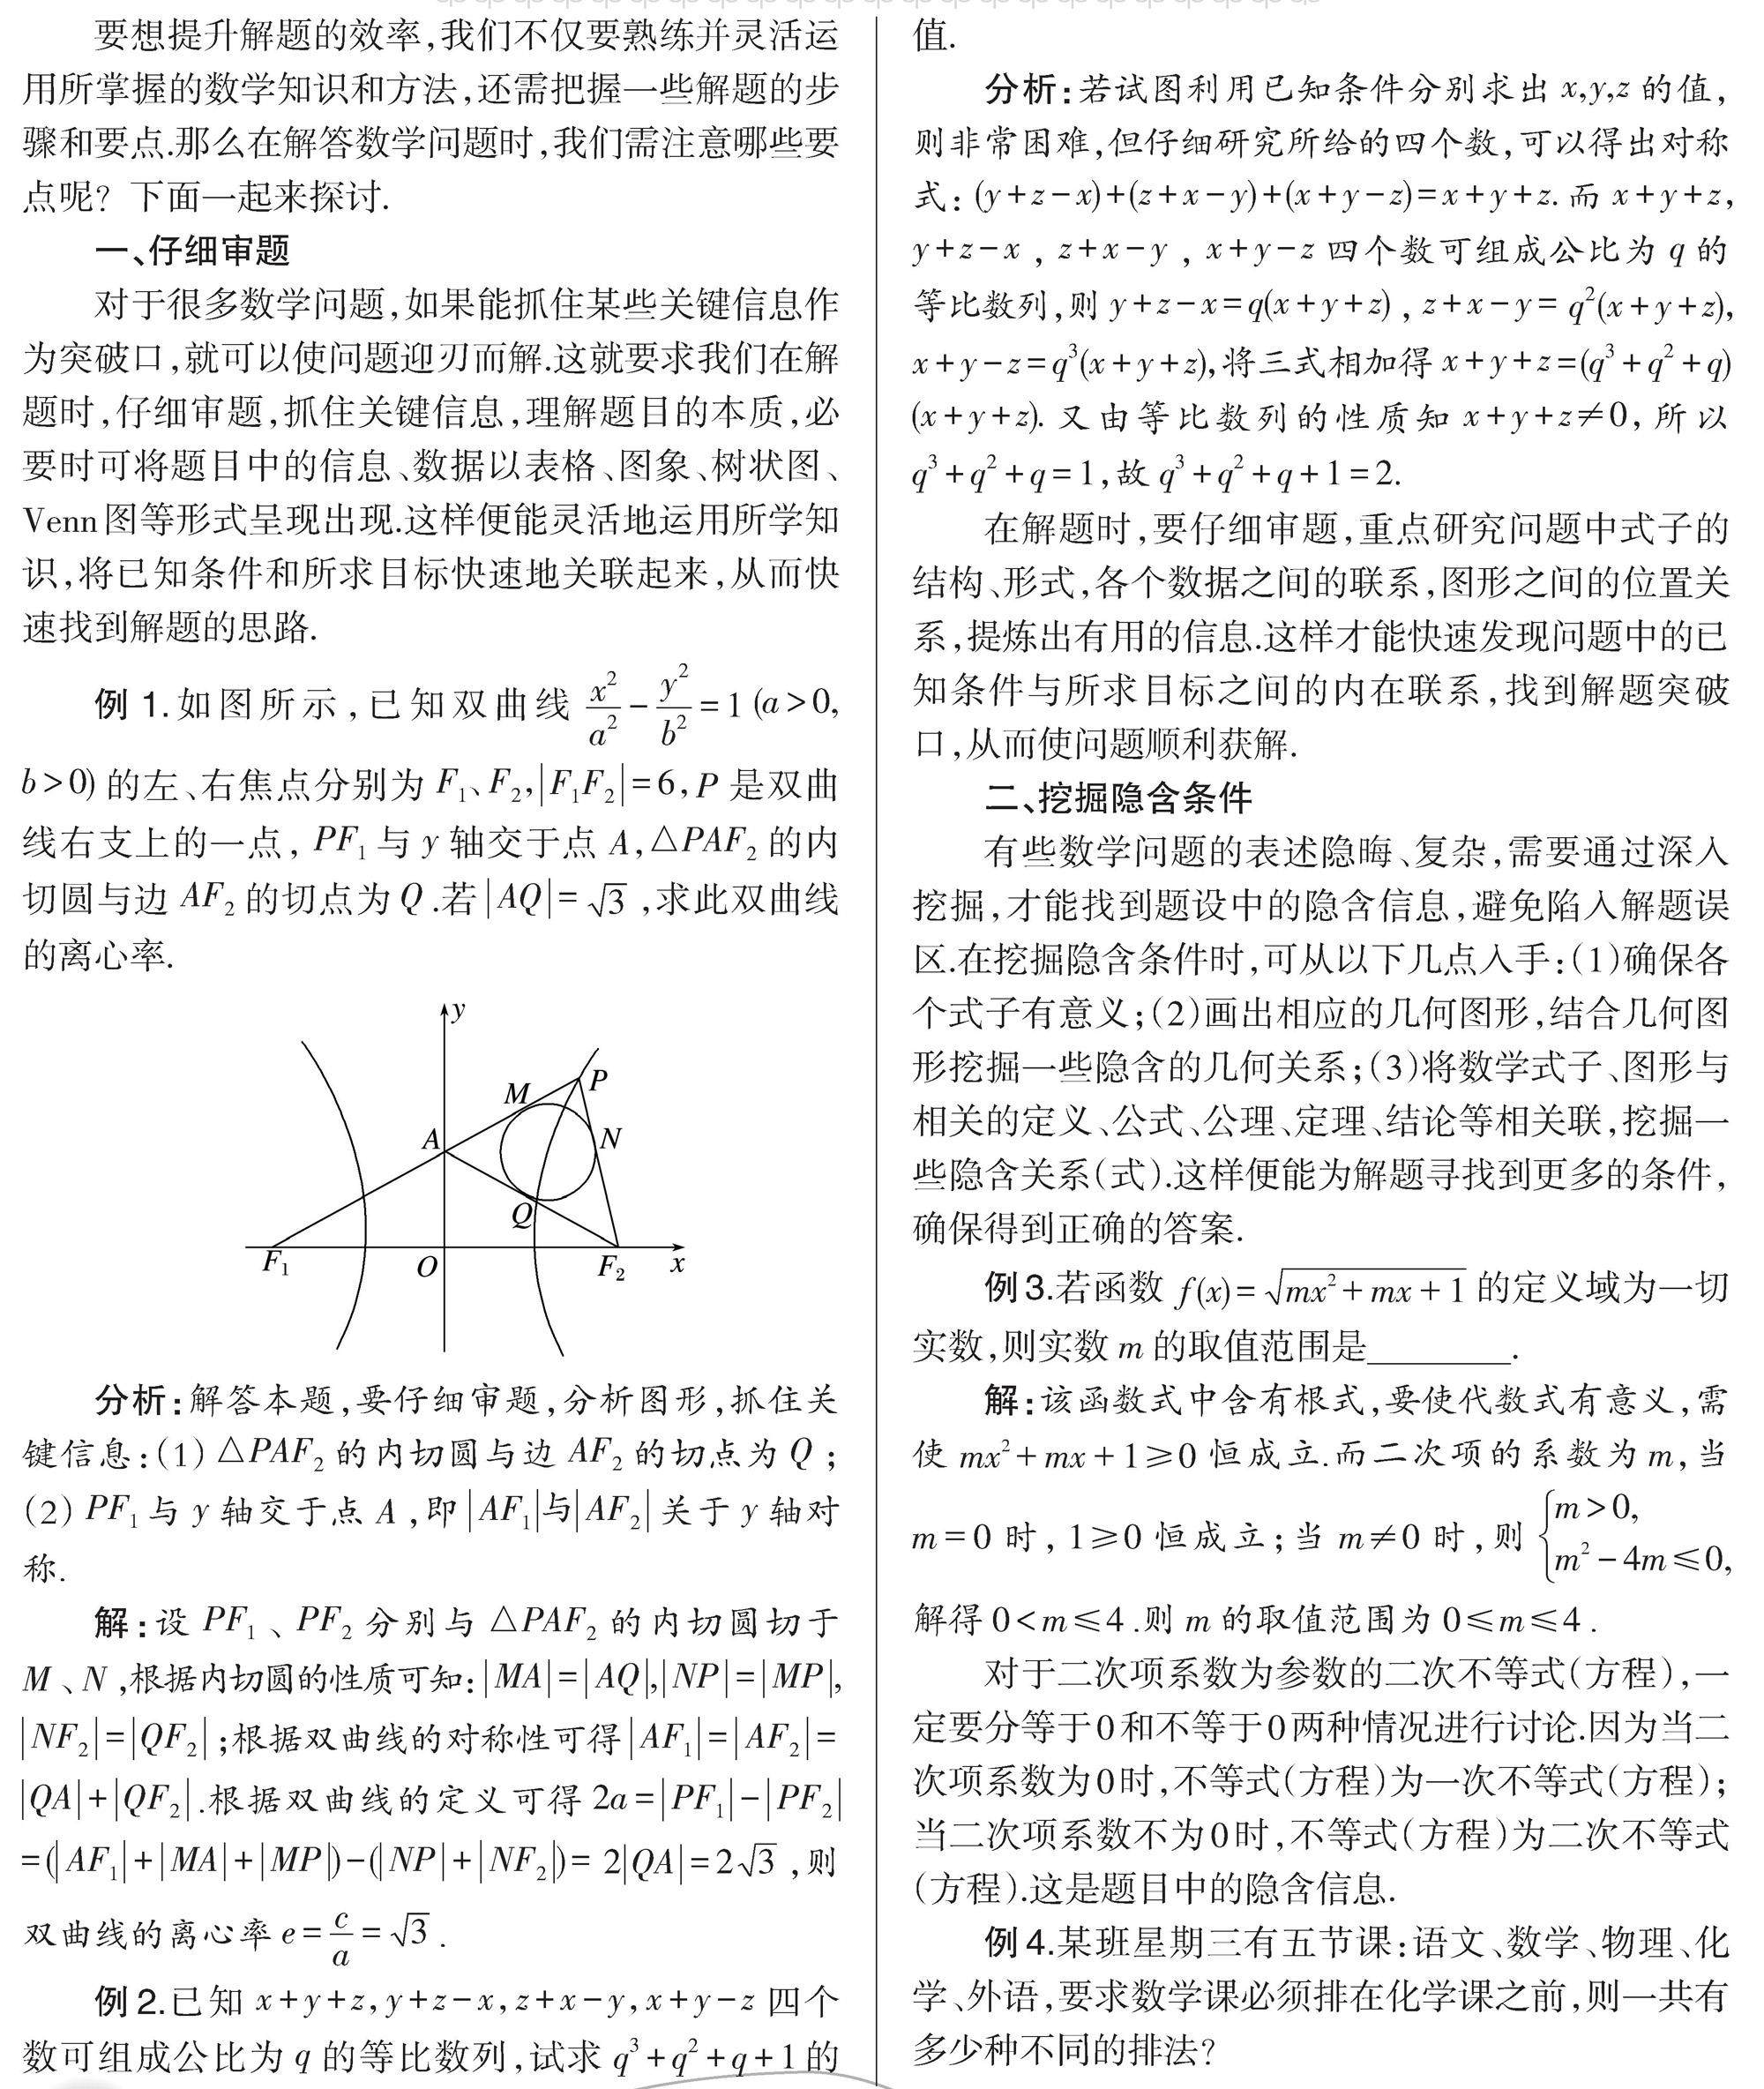 要想提升解题的效率,我们不仅要熟练并灵活运
用所掌握的数学知识和方法,还需把握一些解题的步
骤和要点.那么在解答数学问题时,我们需注意哪些要
点呢？下面一起来探讨.
一、仔细审题
对于很多数学问题,如果能抓住某些关键信息作
为突破口,就可以使问题迎刃而解.这就要求我们在解
题时,仔细审题,抓住关键信息,理解题目的本质,必
要时可将题目中的信息、数据以表格、图象、树状图、
Venn图等形式呈现出现.这样便能灵活地运用所学知
识,将已知条件和所求目标快速地关联起来,从而快
速找到解题的思路.
例 1.如图所示,已知双曲线 x²/a² − y²/b² = 1 (a>0,
b>0) 的左、右焦点分别为 F₁、F₂,|F₁F₂|=6,P 是双曲
线右支上的一点, PF₁ 与 y 轴交于点 A,△PAF₂ 的内
切圆与边 AF₂ 的切点为 Q .若 |AQ|= √3 ,求此双曲线
的离心率.
y
P
M
A
N
Q
F₁
O
F₂
x
分析:解答本题,要仔细审题,分析图形,抓住关
键信息:(1) △PAF₂ 的内切圆与边 AF₂ 的切点为 Q ;
(2) PF₁ 与 y 轴交于点 A ,即 |AF₁|与|AF₂| 关于 y 轴对
称.
解:设 PF₁ 、PF₂ 分别与 △PAF₂ 的内切圆切于
M 、N ,根据内切圆的性质可知: |MA|=|AQ|,|NP|=|MP|,
|NF₂|=|QF₂| ;根据双曲线的对称性可得 |AF₁|=|AF₂|=
|QA|+|QF₂| .根据双曲线的定义可得 2a=|PF₁|−|PF₂|
=(|AF₁|+|MA|+|MP|)−(|NP|+|NF₂|)= 2|QA|=2√3 ,则
双曲线的离心率 e= c/a = √3 .
例 2.已知 x+y+z, y+z−x, z+x−y, x+y−z 四个
数可组成公比为 q 的等比数列,试求 q³+q²+q+1 的
值.
分析:若试图利用已知条件分别求出 x,y,z 的值,
则非常困难,但仔细研究所给的四个数,可以得出对称
式: (y+z−x)+(z+x−y)+(x+y−z)=x+y+z. 而 x+y+z,
y+z−x , z+x−y , x+y−z 四个数可组成公比为 q 的
等比数列,则 y+z−x=q(x+y+z) , z+x−y= q²(x+y+z),
x+y−z=q³(x+y+z),将三式相加得 x+y+z=(q³+q²+q)
(x+y+z). 又由等比数列的性质知 x+y+z≠0, 所以
q³+q²+q=1,故 q³+q²+q+1=2.
在解题时,要仔细审题,重点研究问题中式子的
结构、形式,各个数据之间的联系,图形之间的位置关
系,提炼出有用的信息.这样才能快速发现问题中的已
知条件与所求目标之间的内在联系,找到解题突破
口,从而使问题顺利获解.
二、挖掘隐含条件
有些数学问题的表述隐晦、复杂,需要通过深入
挖掘,才能找到题设中的隐含信息,避免陷入解题误
区.在挖掘隐含条件时,可从以下几点入手:(1)确保各
个式子有意义;(2)画出相应的几何图形,结合几何图
形挖掘一些隐含的几何关系;(3)将数学式子、图形与
相关的定义、公式、公理、定理、结论等相关联,挖掘一
些隐含关系(式).这样便能为解题寻找到更多的条件,
确保得到正确的答案.
例 3.若函数 f(x)= √(mx²+mx+1) 的定义域为一切
实数,则实数 m 的取值范围是________.
解:该函数式中含有根式,要使代数式有意义,需
使 mx²+mx+1≥0 恒成立.而二次项的系数为 m, 当
m=0 时, 1≥0 恒成立; 当 m≠0 时, 则 {m>0, m²−4m≤0,
解得 0<m≤4 .则 m 的取值范围为 0≤m≤4 .
对于二次项系数为参数的二次不等式(方程),一
定要分等于0和不等于0两种情况进行讨论.因为当二
次项系数为0时,不等式(方程)为一次不等式(方程);
当二次项系数不为0时,不等式(方程)为二次不等式
(方程).这是题目中的隐含信息.
例 4.某班星期三有五节课:语文、数学、物理、化
学、外语,要求数学课必须排在化学课之前,则一共有
多少种不同的排法？